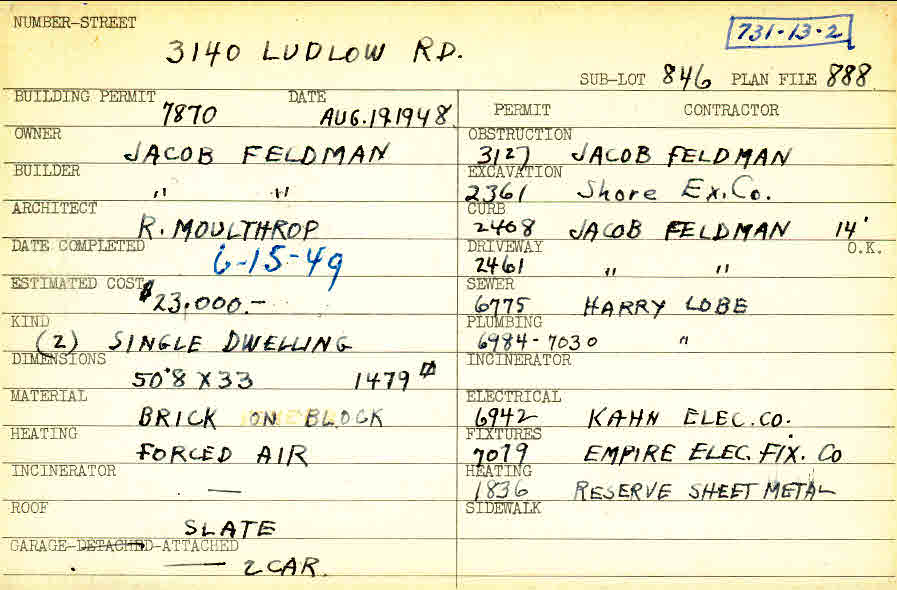 NUMBER-STREET
731-13-2
3140 LUDLOW RD.
SUB-LOT 846 PLAN FILE 888
BUILDING PERMIT DATE
7870 AUG. 19, 1948
OWNER
JACOB FELDMAN
BUILDER
" "
ARCHITECT
R. MOULTHROP
DATE COMPLETED
6-15-49
ESTIMATED COST
$23,000.-
KIND
(2) SINGLE DWELLING
DIMENSIONS
50'8 X 33 1479
MATERIAL
BRICK ON BLOCK
HEATING
FORCED AIR
INCINERATOR
—
ROOF
SLATE
GARAGE-DETACHED-ATTACHED
— 2 CAR.
PERMIT CONTRACTOR
OBSTRUCTION
3127 JACOB FELDMAN
EXCAVATION
2361 Shore Ex. Co.
CURB
2408 JACOB FELDMAN 14'
DRIVEWAY O.K.
2461 " "
SEWER
6775 HARRY LOBE
PLUMBING
6984-7030 "
INCINERATOR
ELECTRICAL
6942 KAHN ELEC. CO.
FIXTURES
7079 EMPIRE ELEC. FIX. Co
HEATING
1836 RESERVE SHEET METAL
SIDEWALK